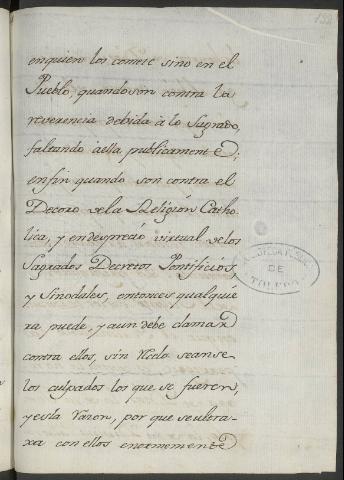 en quien los comete sino en el
Pueblo quando son contra la
reverencia debida à lo Sagrado,
faltando aella publicamente;
en fin quando son contra el
Decoro dela Religión Catho-
lica, y en desprecio virtual delos
Sagrados Decretos Pontificios
y Sinodales, entonces qualquie
ra puede, y aun debe clamar
contra ellos, sin seanse
los culpados los que se fueren,
y es la razon, por que se ultra-
xa con ellos enormemente
DE
TOLEDO